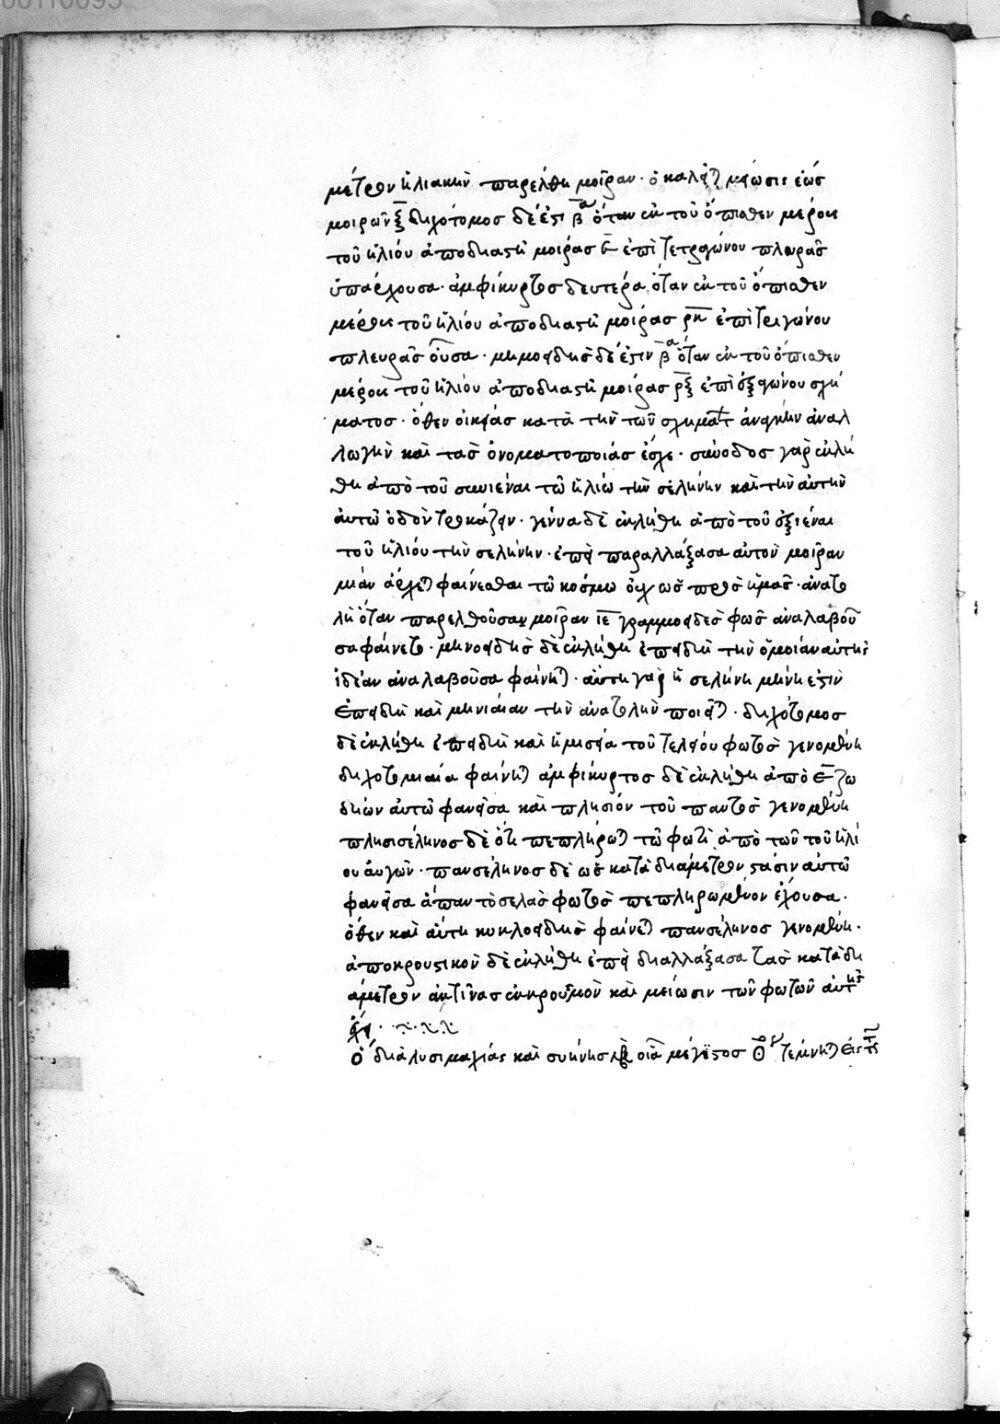 μετρον ἡλιακὴν παρέλθη μοῖραν · ὃ καλεῖται μείωσις ἕως
μοιρῶν ξ διχότομος δέ ἐστι β ὅταν ἐκ τοῦ ὄπισθεν μέρους
τοῦ ἡλίου ἀποδιαστῆ μοίρας ἐπὶ τετραγώνου πλευρᾶς
ὑπάρχουσα · ἀμφίκυρτος δευτέρα ὅταν ἐκ τοῦ ὄπισθεν
μέρους τοῦ ἡλίου ἀποδιαστῆ μοίρας ρκ ἐπὶ τριγώνου
πλευρᾶς οὖσα · μηνοειδὴς δέ ἐστιν β ὅταν ἐκ τοῦ ὄπισθεν
μέρους τοῦ ἡλίου ἀποδιαστῆ μοίρας ρξ ἐπὶ ἑξαγώνου σχή
ματος · ὅθεν οἰκείας κατὰ τὴν τῶν σχημάτων ἀναλ
λαγὴν καὶ τὰς ὀνοματοποιίας ἔσχε · σύνοδος γὰρ ἐκλή
θη ἀπὸ τοῦ συνιέναι τῶ ἡλίω τὴν σελήνην καὶ τὴν αὐτὴν
αὐτῶ ὁδὸν τροχάζειν · γέννα δὲ ἐκλήθη ἀπὸ τοῦ ἐξιέναι
τοῦ ἡλίου τὴν σελήνην · ἐπεὶ παραλλάξασα αὐτὸν μοῖραν
μίαν ἄρχεται φαίνεσθαι τῶ κόσμω οὐχ ὡς πρὸς ἡμᾶς · ἀνατο
λὴ ὅταν παρελθοῦσα μοῖραν ιε γραμμοειδὲς φῶς ἀναλαβοῦ
σα φαίνεται · μηνοειδὴς δὲ ἐκλήθη ἐπειδὴ τὴν ὁμοίαν αὐτῆς
ἰδέαν ἀναλαβοῦσα φαίνεται · αὕτη γὰρ ἡ σελήνη μήνη ἐστὶν
ἐπειδὴ καὶ μηνιαίαν τὴν ἀνατολὴν ποιεῖται · διχότομος
δὲ ἐκλήθη ἐπειδὴ καὶ ἡμισεία τοῦ τελείου φωτὸς γενομένη
διχοτομιαία φαίνεται ἀμφίκυρτος δὲ ἐκλήθη ἀπὸ ε ζω
δίων αὐτῶ φανεῖσα καὶ πλησίον τοῦ παντὸς γενομένη
πλησισέληνος δὲ ὅτι πεπλήρωται τῶ φωτὶ ἀπὸ τῶν τοῦ ἡλί
ου αὐγῶν · πανσέληνος δὲ ὡς κατὰ διάμετρον στάσιν αὐτῶ
φανεῖσα ἅπαν τὸ σέλας φωτὸς πεπληρωμένον ἔχουσα ·
ὅθεν καὶ αὕτη κυκλοειδὴς φαίνεται πανσέληνος γενομένη ·
ἀποκρουστικὸν δὲ ἐκλήθη ἐπεὶ διαλλάξασα τὰς κατὰ δι
άμετρον ἀκτῖνας ἐκκρουσμὸν καὶ μείωσιν τῶν φωτῶν αὐτῆς
ἔχει
ὁ διὰ λυσιμαχίας καὶ συήνης μέγιστος τέμνεται εἰς